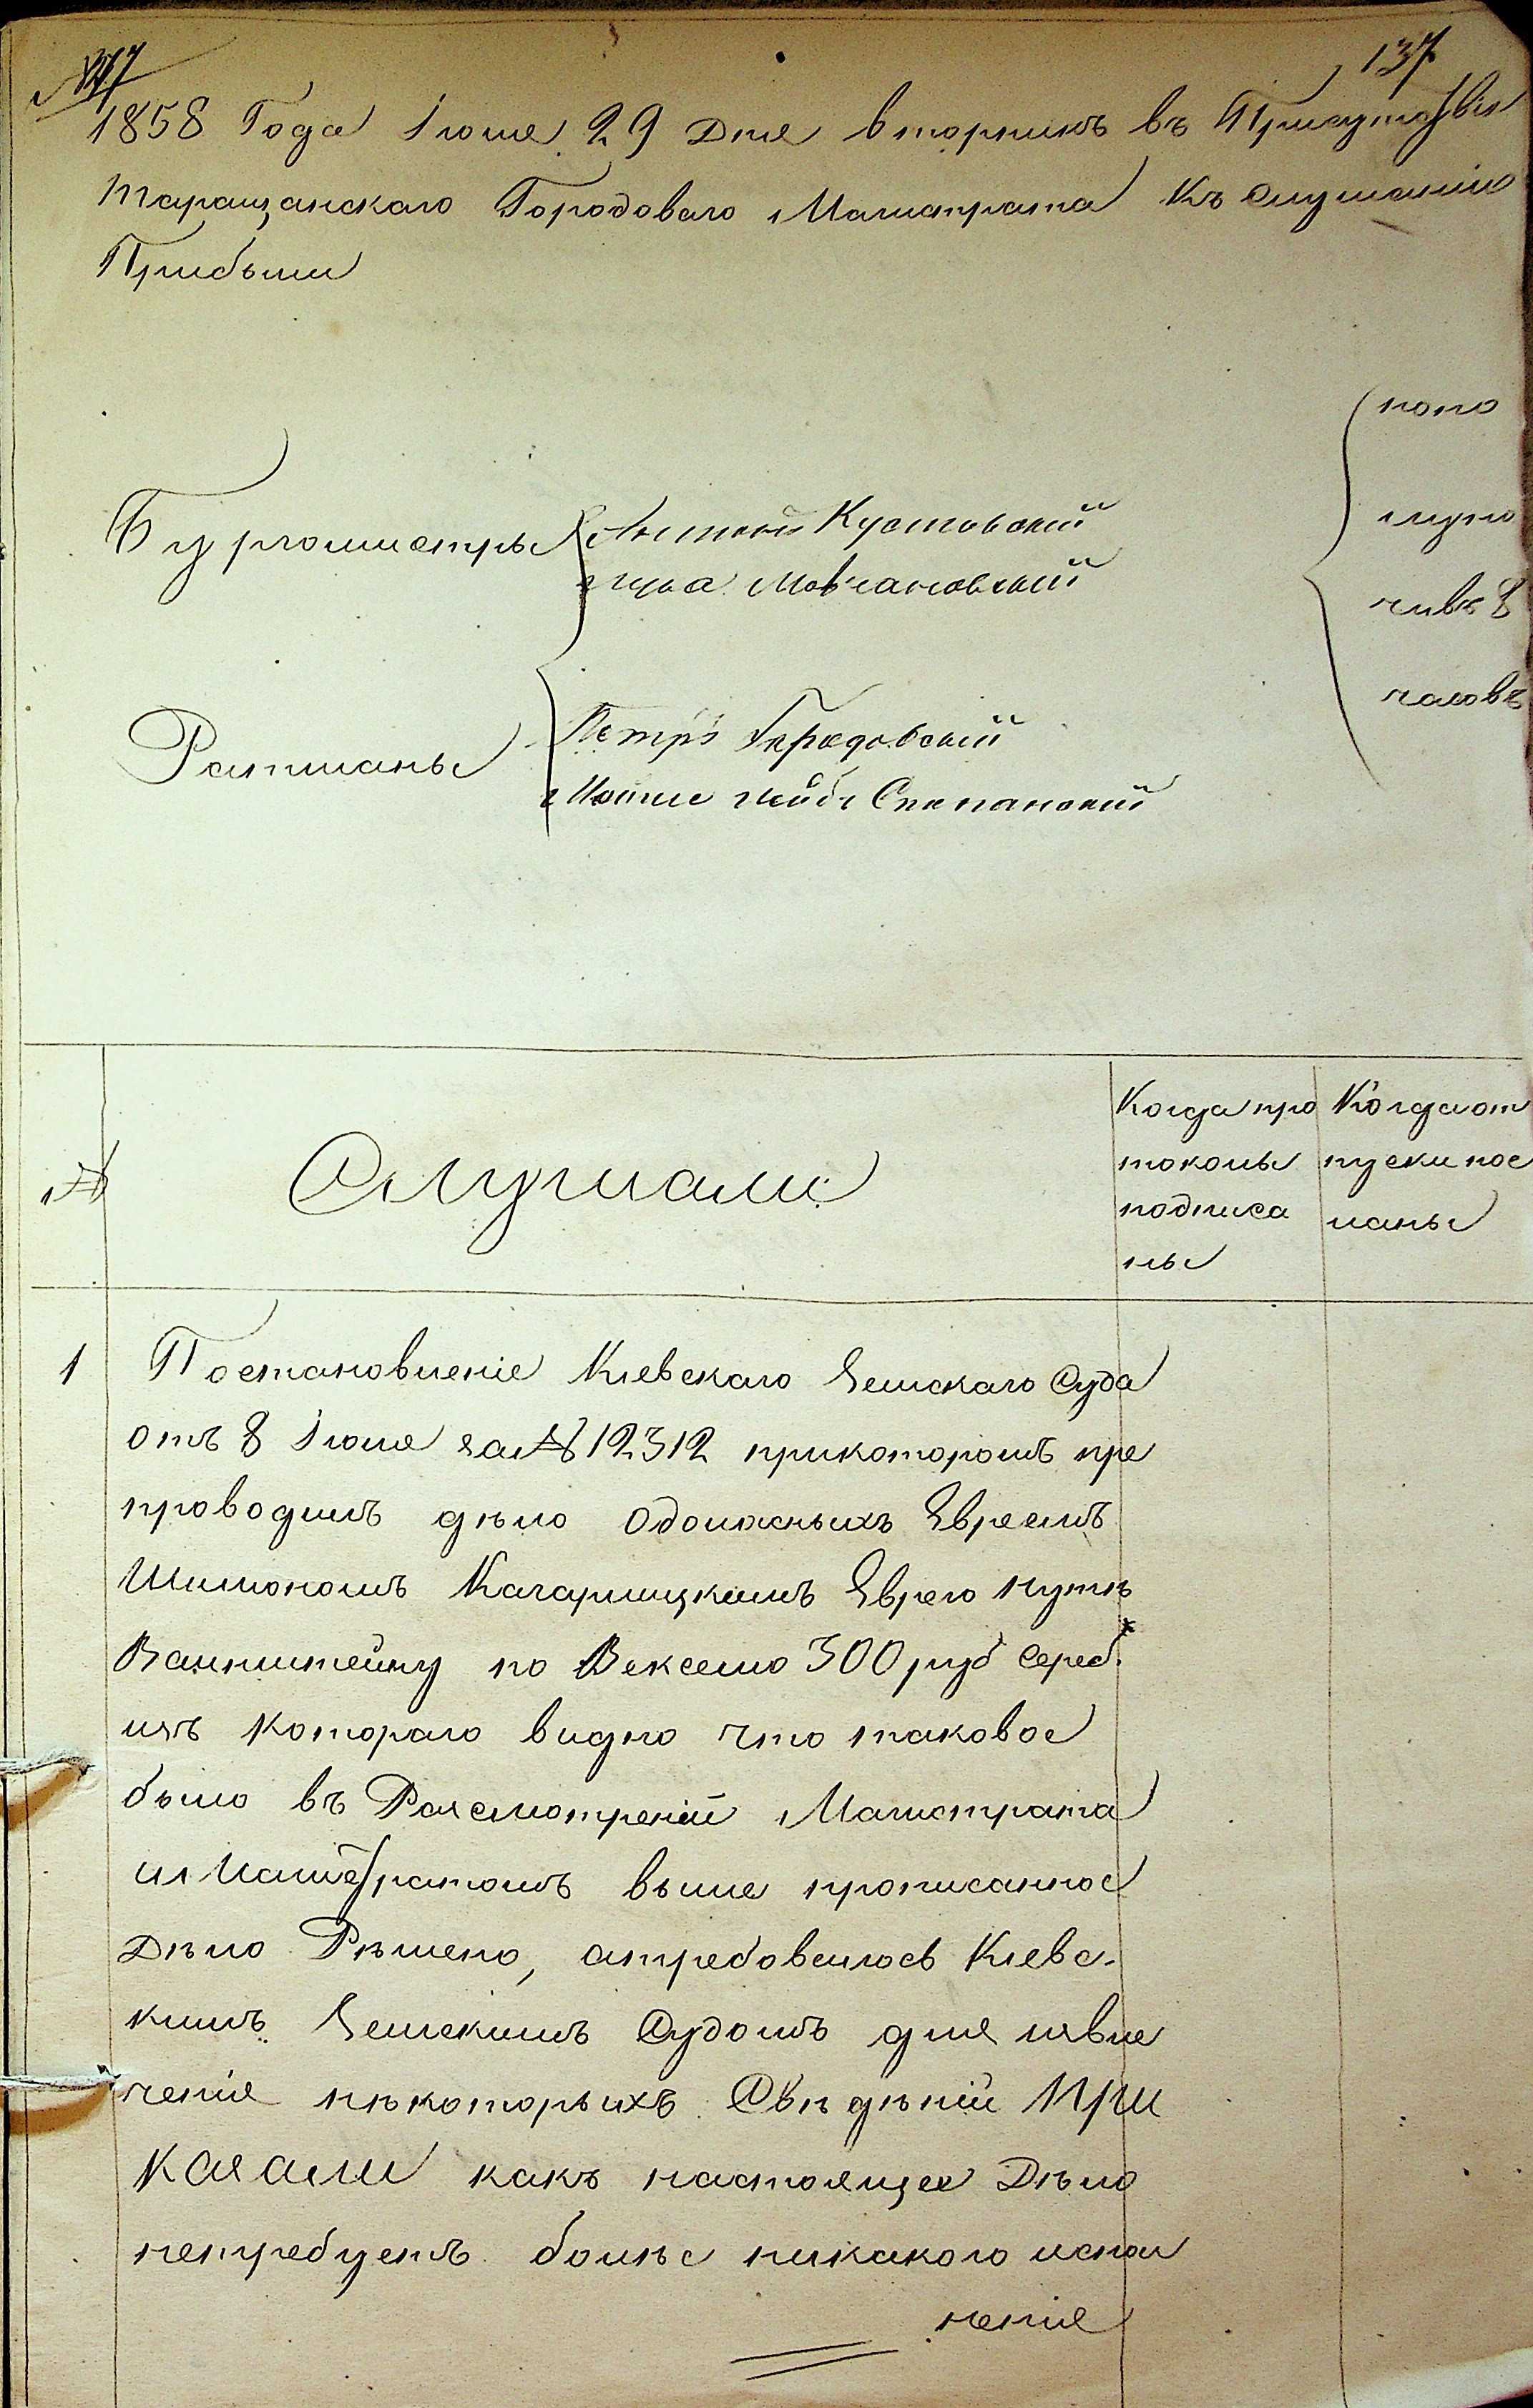 137
1858 Года Iюля 29 Дня вторникъ въ Присутствiи
Таращанскаго Городоваго Магистрата Къ слушанiю
Прибыли
Бургомистры
Кустовскiй
Мовчановскiй
Ратманы
Петръ Городовскiй
Лейбъ Степанскiй
попо
луно
чивъ 8
часовъ
№
Слушали
Когда про
токолы
подписа
ны
Когда от
пуски пос
ланы
1
Постановленiе Кiевскаго Земскаго Суда
отъ 8 Iюля за № 12312 прикоторомъ пре
проводилъ дѣло Одолжныхъ Евреемъ
Шимономъ Кагарлицкимъ Еврею Нутѣ
Ванштейну по Векселю 300 руб сереб.
изъ котораго видно что таковое
было въ Разсмотренiи Магистрата
и Магистратомъ выше прописанное
Дѣло Рѣшено, атребовалось Кiевс-
кимъ Земскимъ Судомъ для извле
ченiя нѣкоторыхъ Свѣдѣнiй При
казали какъ настоящее Дѣло
нетребуетъ болѣе никакого испол
ненiя